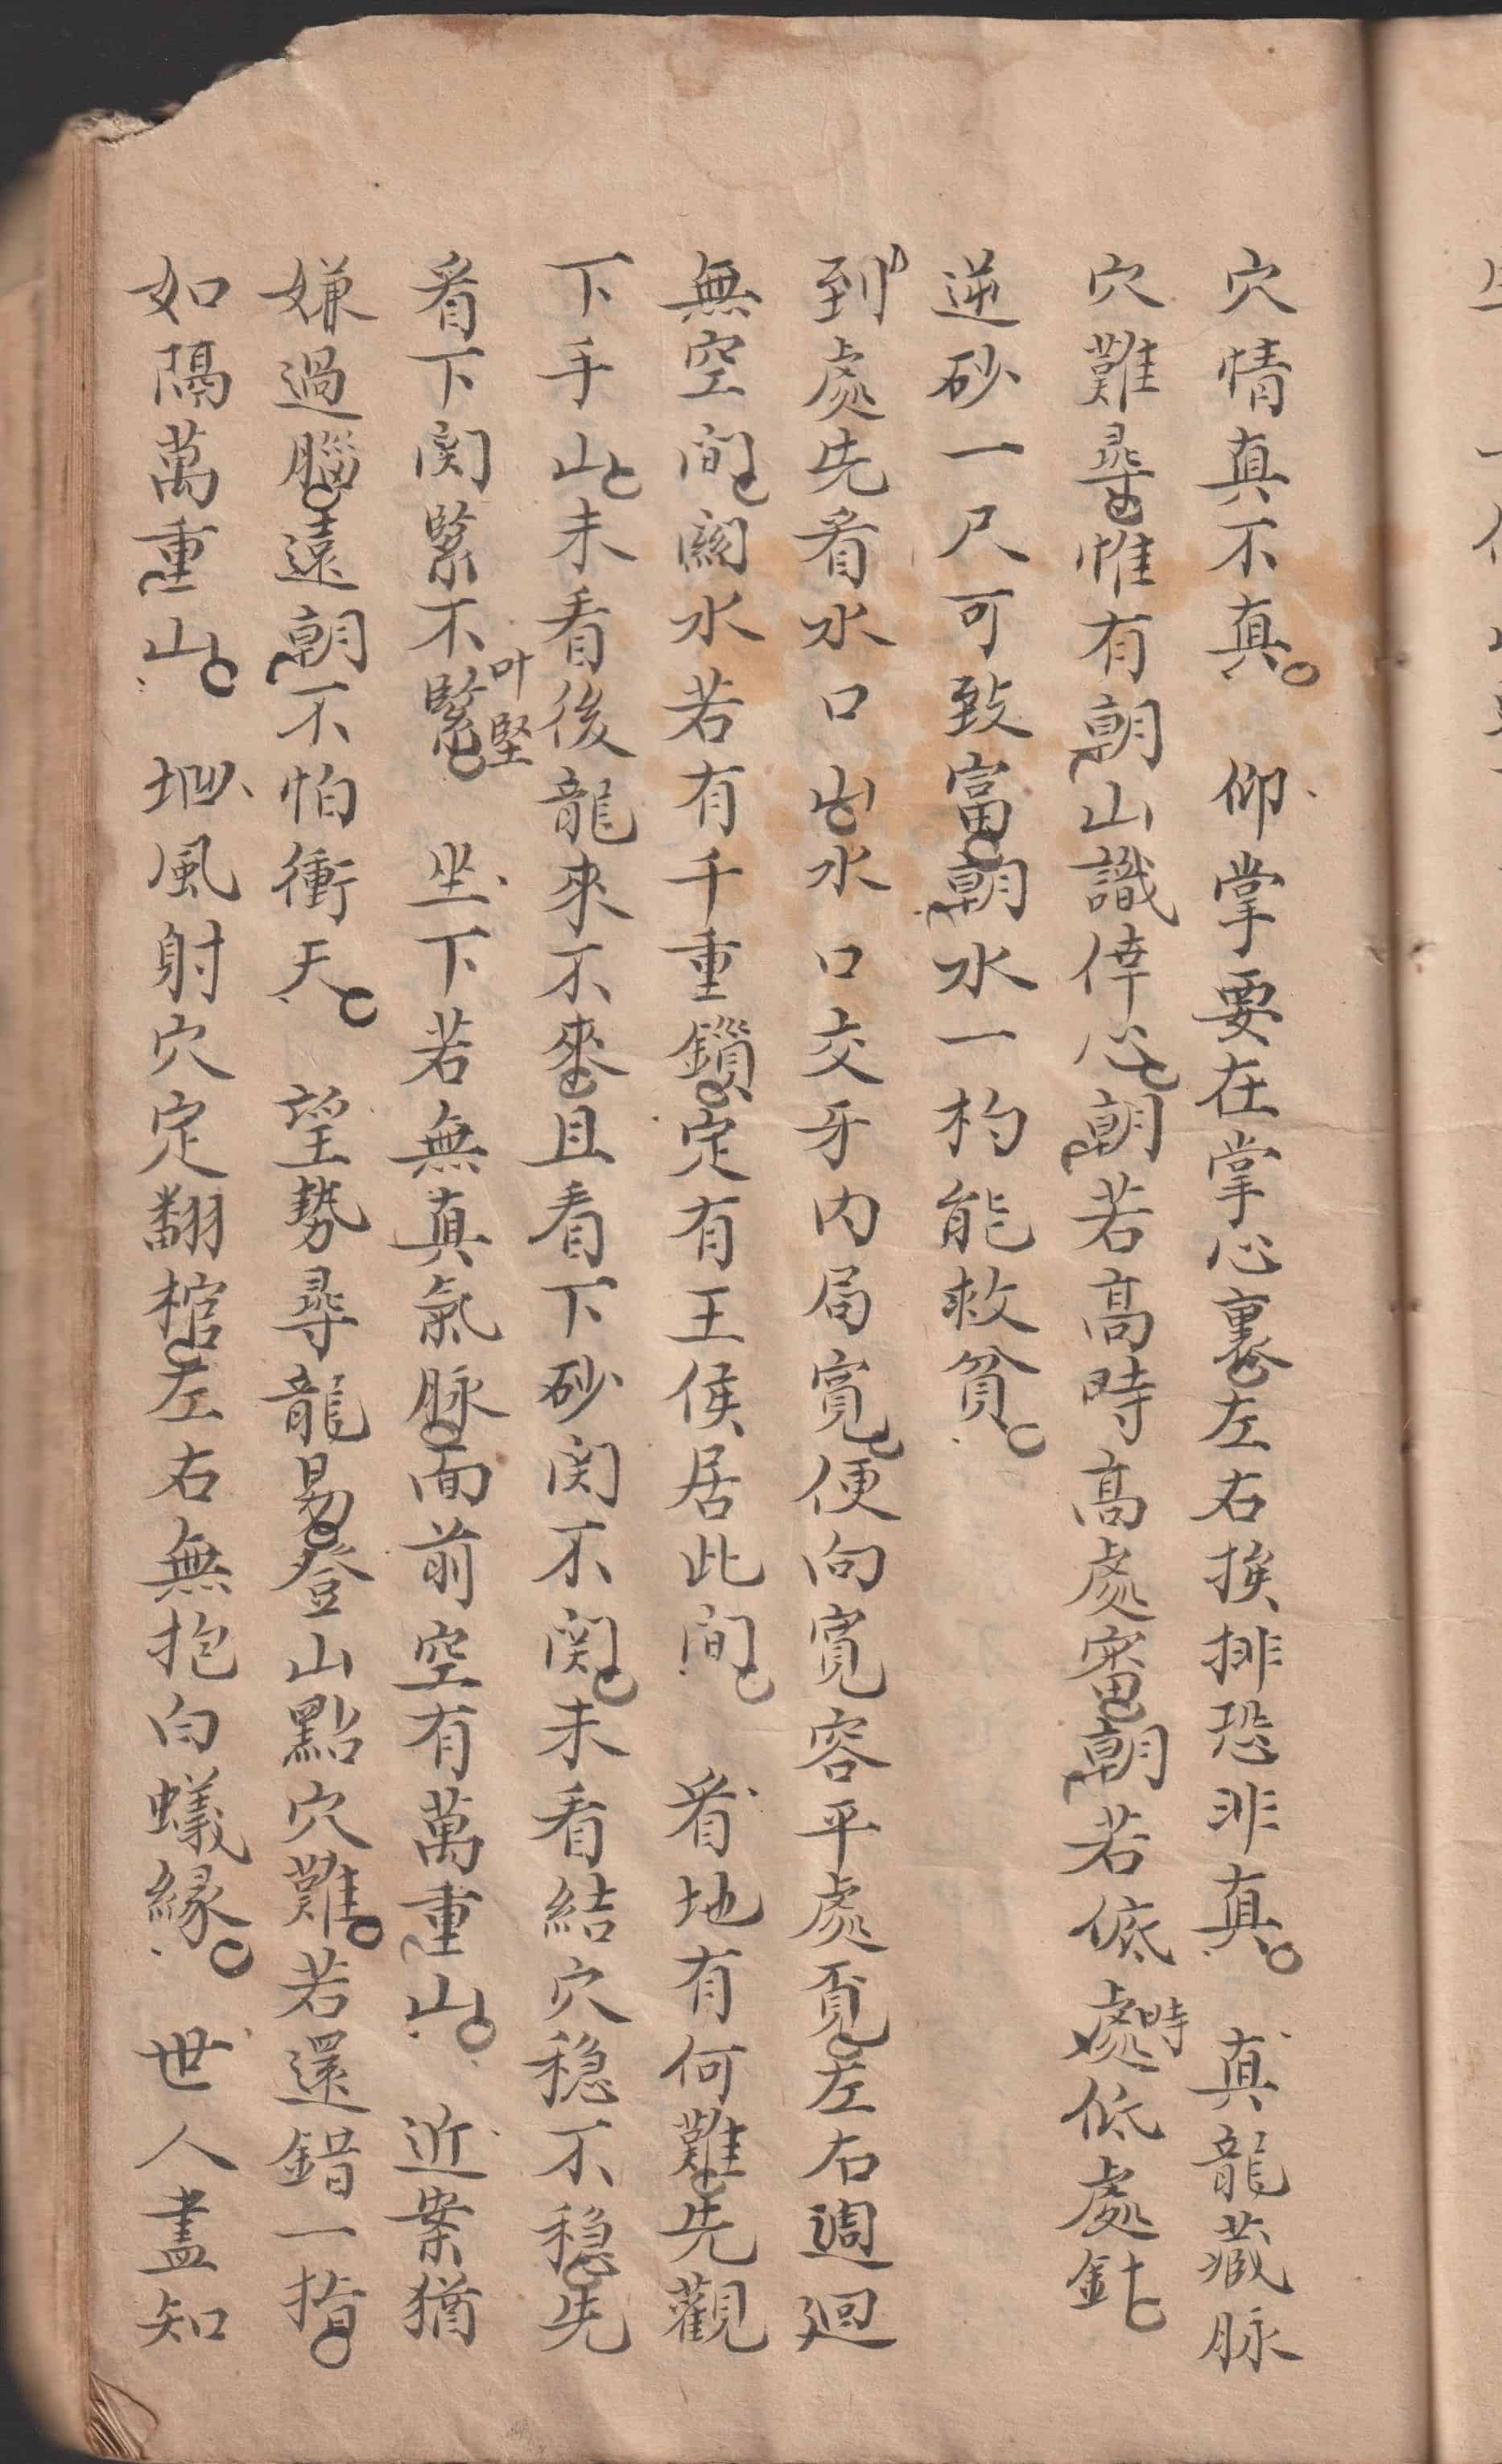 穴情真不真。仰掌要在掌心裏左右挨排恐非真。真龍藏脉
穴難尋惟有朝山識倖心朝若高時高處審朝若低處時低處針
逆砂一尺可致富朝水一杓能救貧。
到處先看水口山水口交牙内局寬便向寬容平處覓左右週迴
無空間關水若有千重鎖定有王侯居此間看地有何難先觀
下手山未看後龍來不來且看下砂関不関未看結穴穏不穏先
看下関緊不緊叶堅坐下若無真氣脉面前空有萬重山近案猶
嫌過腦遠朝不怕衝天望勢尋龍易登山點穴難若還錯一指
如隔萬重山坳風射穴定翻棺左右無抱白蟻緣世人盡知